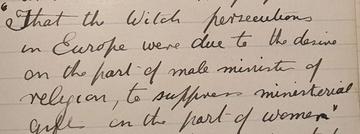 "That the Witch persecutions
in Europe were due to the desire
on the part of male ministers of
religion, to suppress ministerial
gifts on the part of women"